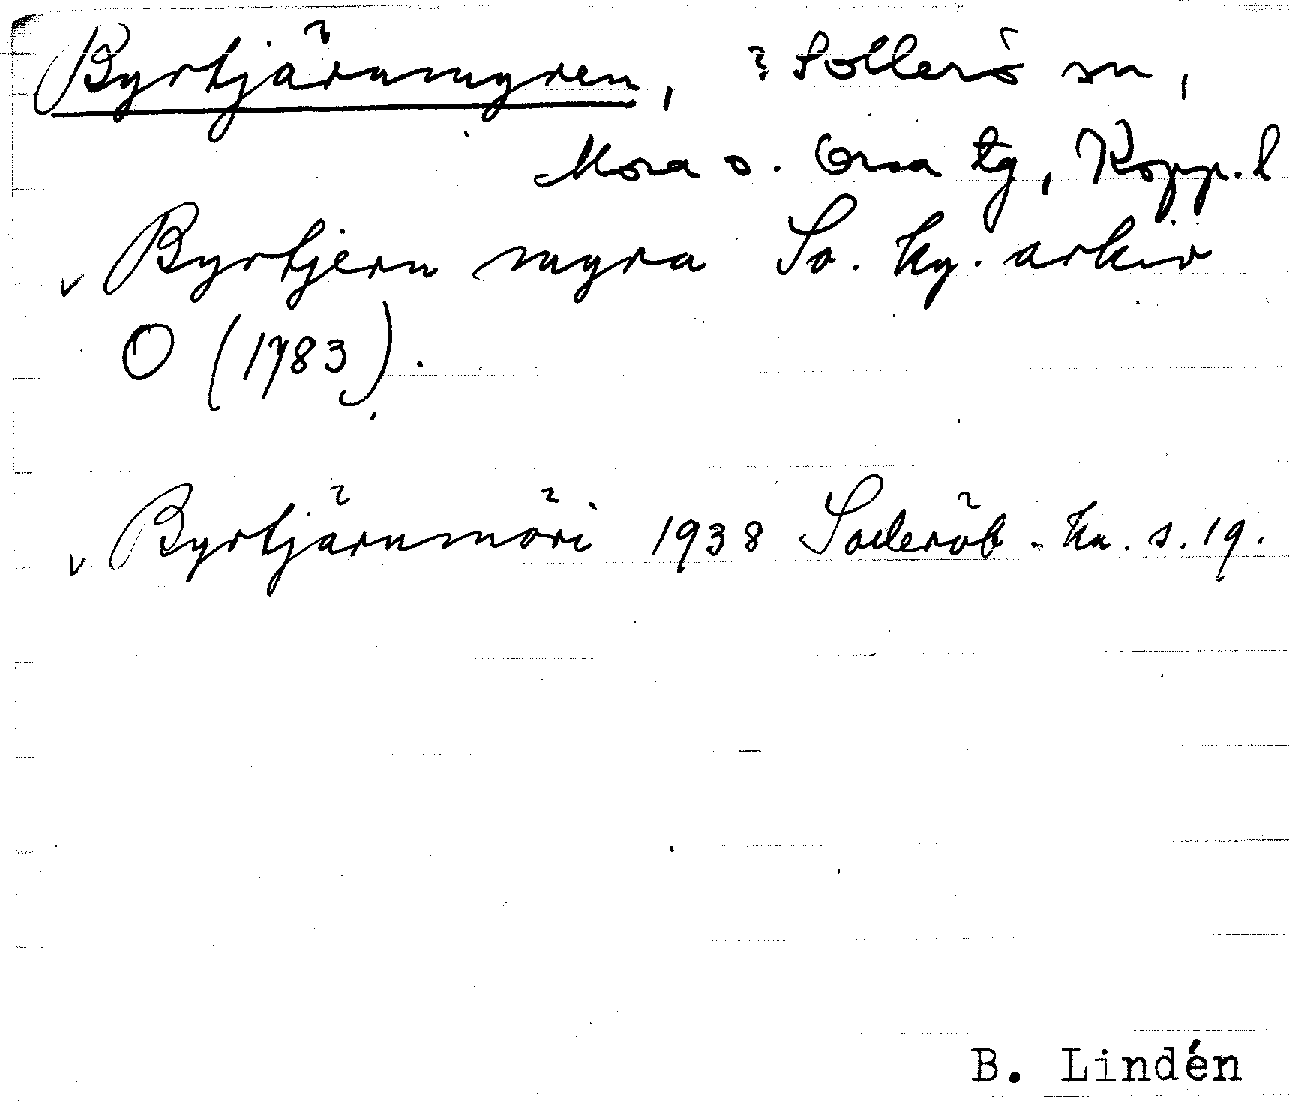 Byrtjärnmyren, ? Sollerö sn,
Mora o. Orsa tg, Kopp. l
v Byrtjern myra So. ky. arkiv
O (1783).
v Byrtjärnmöri 1938 s. 19.
B. Lindén